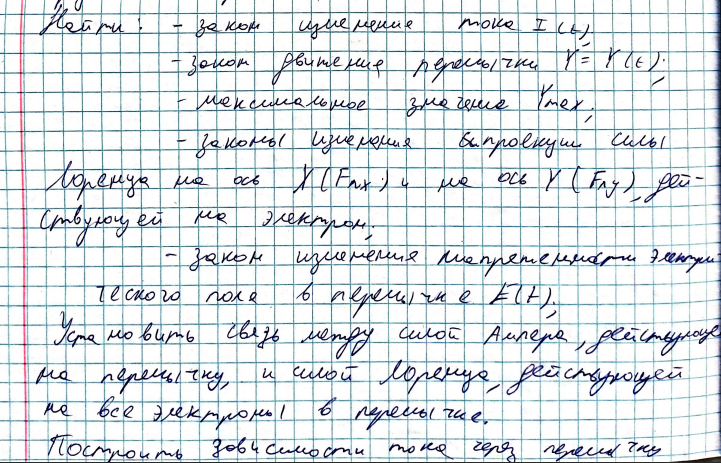 Найти: - закон изменение тока I(t);
- закон движение перемычки Y = Y(t);
- максимальное значение Ymax;
- законы изменения проекции силы
Лоренца на ось X (Fлx) и на ось Y (Fлy), дей-
ствующей на электрон;
- закон изменения напряженности электри-
ческого поля в перемычке E(t);
Установить связь между силой Ампера, действующе
на перемычку, и силой Лоренца, действующей
на все электроны в перемычке.
Построить зависимости тока через перемычку